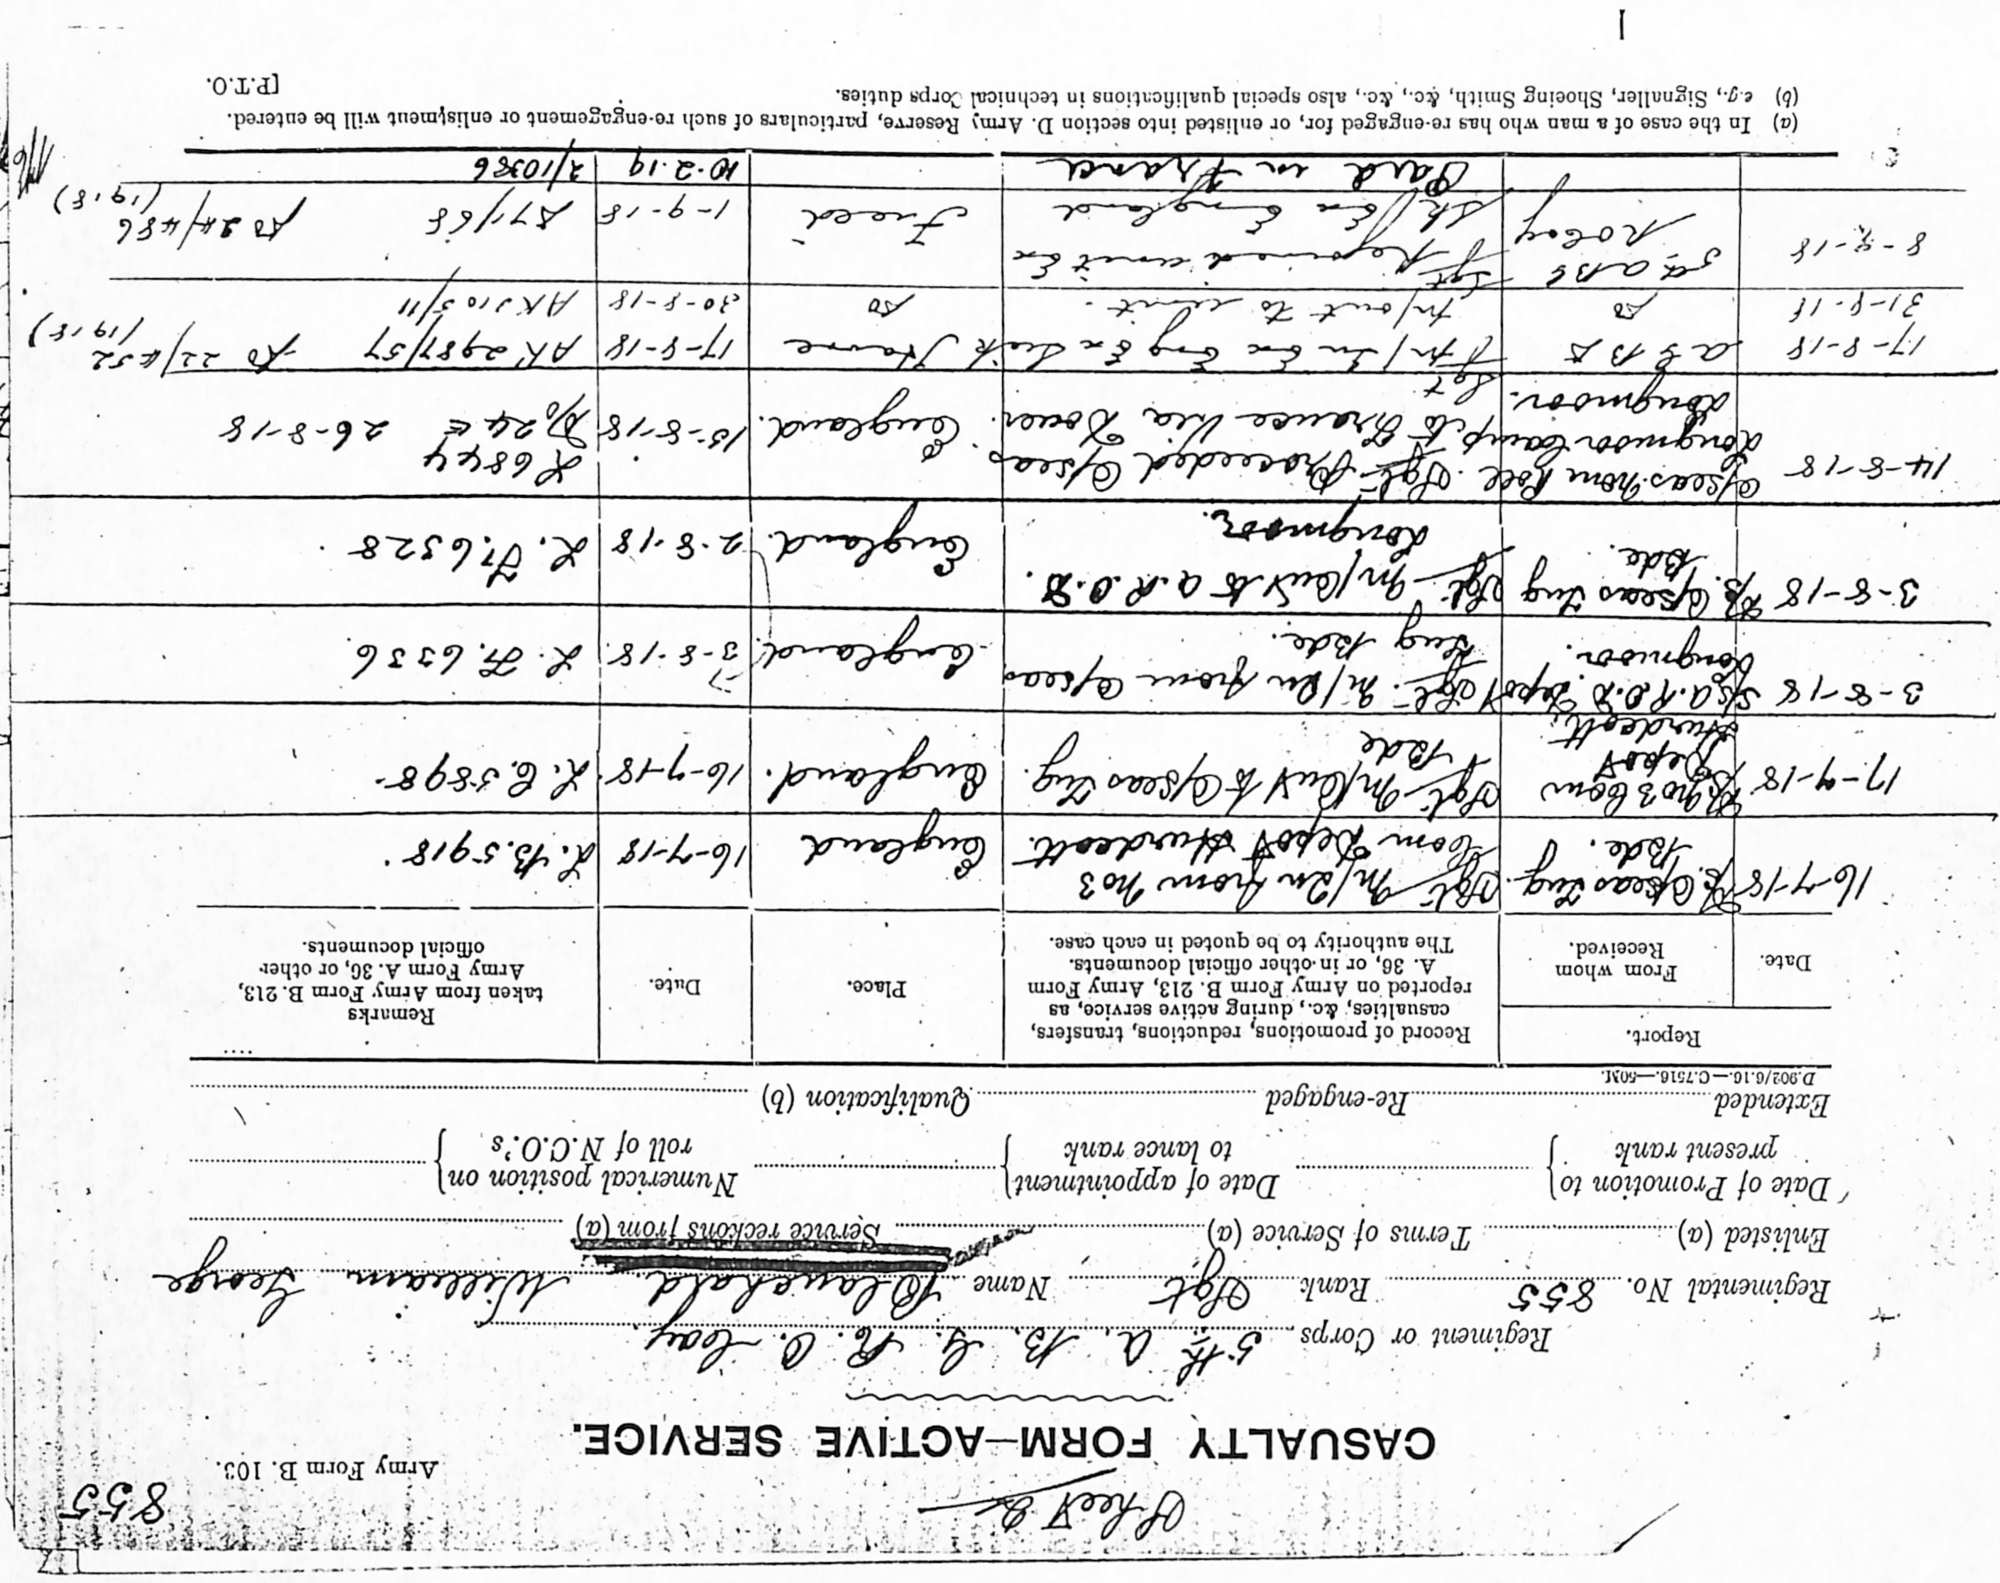 Sheet 2
855
Army Form B. 103.
CASUALTY FORM—ACTIVE SERVICE.
Regiment or Corps 5th A. B. G. R. O. Coy.
Regimental No. 855 Rank Sgt Name Blanchard William George
Enlisted (a) Terms of Service (a) Service reckons from (a)
Date of Promotion to present rank } Date of appointment to lance rank } Numerical position on roll of N.C.O's }
Extended Re-engaged Qualification (b)
D.902/6.16.—C.7516.—50M.
Report.
Date.
From whom Received.
Record of promotions, reductions, transfers, casualties, &c., during active service, as reported on Army Form B. 213, Army Form A. 36, or in other official documents. The authority to be quoted in each case.
Place.
Date.
Remarks taken from Army Form B. 213, Army Form A. 36, or other official documents.
16-7-18 O/seas Tng. Bde. Sgt M/In from No 3 Com Depot Hurdcott. England 16-7-18 L.B.5918.
17-7-18 No 3 Com Depot Hurdcott Sgt M/Out to O/seas Tng. Bde England. 16-7-18. L.C.5898.
3-8-18 A.R.O.D. Depot Longmoor. Sgt. M/In from O/seas Tng Bde. England. 3-8-18. L.H.6336.
3-8-18 O/seas Tng Bde. Sgt M/Out to A.R.O.D. Longmoor. England. 2-8-18 L.H.6328.
14-8-18 O/seas from Longmoor Camp Longmoor. Sgt Proceeded O/seas to France via Dover. England. 15-8-18 L6844 D/O 24 E 26-8-18
17-8-18 A G B D Sgt M/In Ex Eng Ex Sick Havre 17-8-18 AK 2987/57 DO 22/452 /1918)
31-8-18 DO M/out to unit. DO 30-8-18 AKJ 105/11
8-9-18 5th ABG ROCoy Sgt Rejoined unit Ex Sk/Ex England Field 1-9-18 A71/68 DO 24/486 /1918)
Paid in France 10.2.19 2/10386
(a) In the case of a man who has re-engaged for, or enlisted into section D. Army Reserve, particulars of such re-engagement or enlistment will be entered.
(b) e.g., Signaller, Shoeing Smith, &c., &c., also special qualifications in technical Corps duties.
[P.T.O.